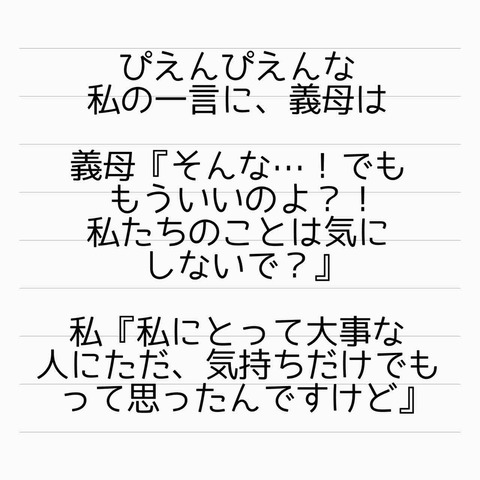 ぴえんぴえんな
私の一言に、義母は
義母『そんな…！でも
もういいのよ？！
私たちのことは気に
しないで？』
私『私にとって大事な
人にただ、気持ちだけでも
って思ったんですけど』